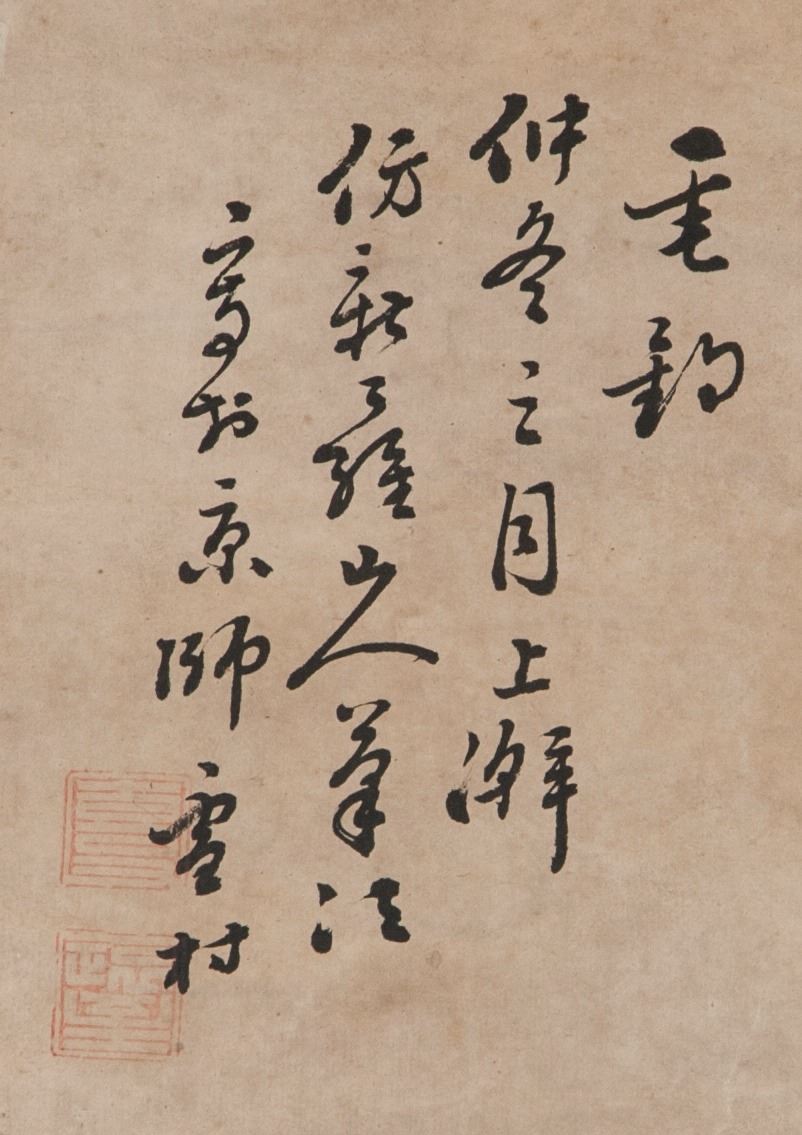 垂釣
仲冬之月上澣
仿新羅山人筆法
寫於京師雪村